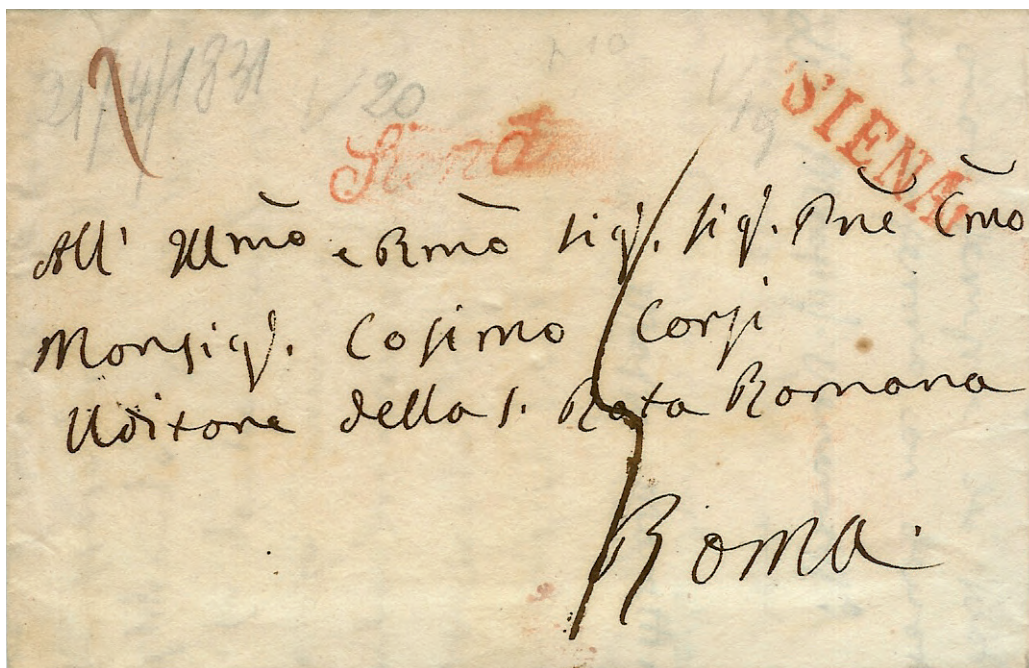 21/4/1831 V 20 r 10 V 19
Siena
SIENA
All' Illmō e Rmō Sigʳ. Sigʳ. Pnē Cmō
Monsigʳ. Cosimo Corsi
Uditore della S. Rota Romana
Roma.